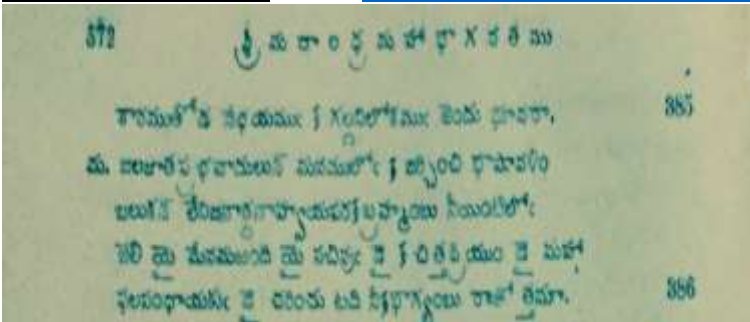 372 శ్రీ మ దాం ధ్ర మ హా భా గ వ త ము
గారముతోడ భూవరా. 385
మ. జలజాతప్రభవాదులున్ మనములోఁ జర్చించి భాషావళిం
బలుకన్ లేనిజనార్దనాహ్వయపరబ్రహ్మంబు నీయింటిలోఁ
జెలి యై మేనమఱంది యై సచివుఁ డై చిత్తప్రియుం డై మహా
ఫలసంధాయకుఁ డై చరించు టది నీభాగ్యంబు రాజో త్తమా. 386